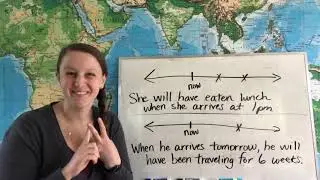 now
She will have eaten lunch
when she arrives at 1pm
now
When he arrives tomorrow, he will
have been traveling for 6 weeks.